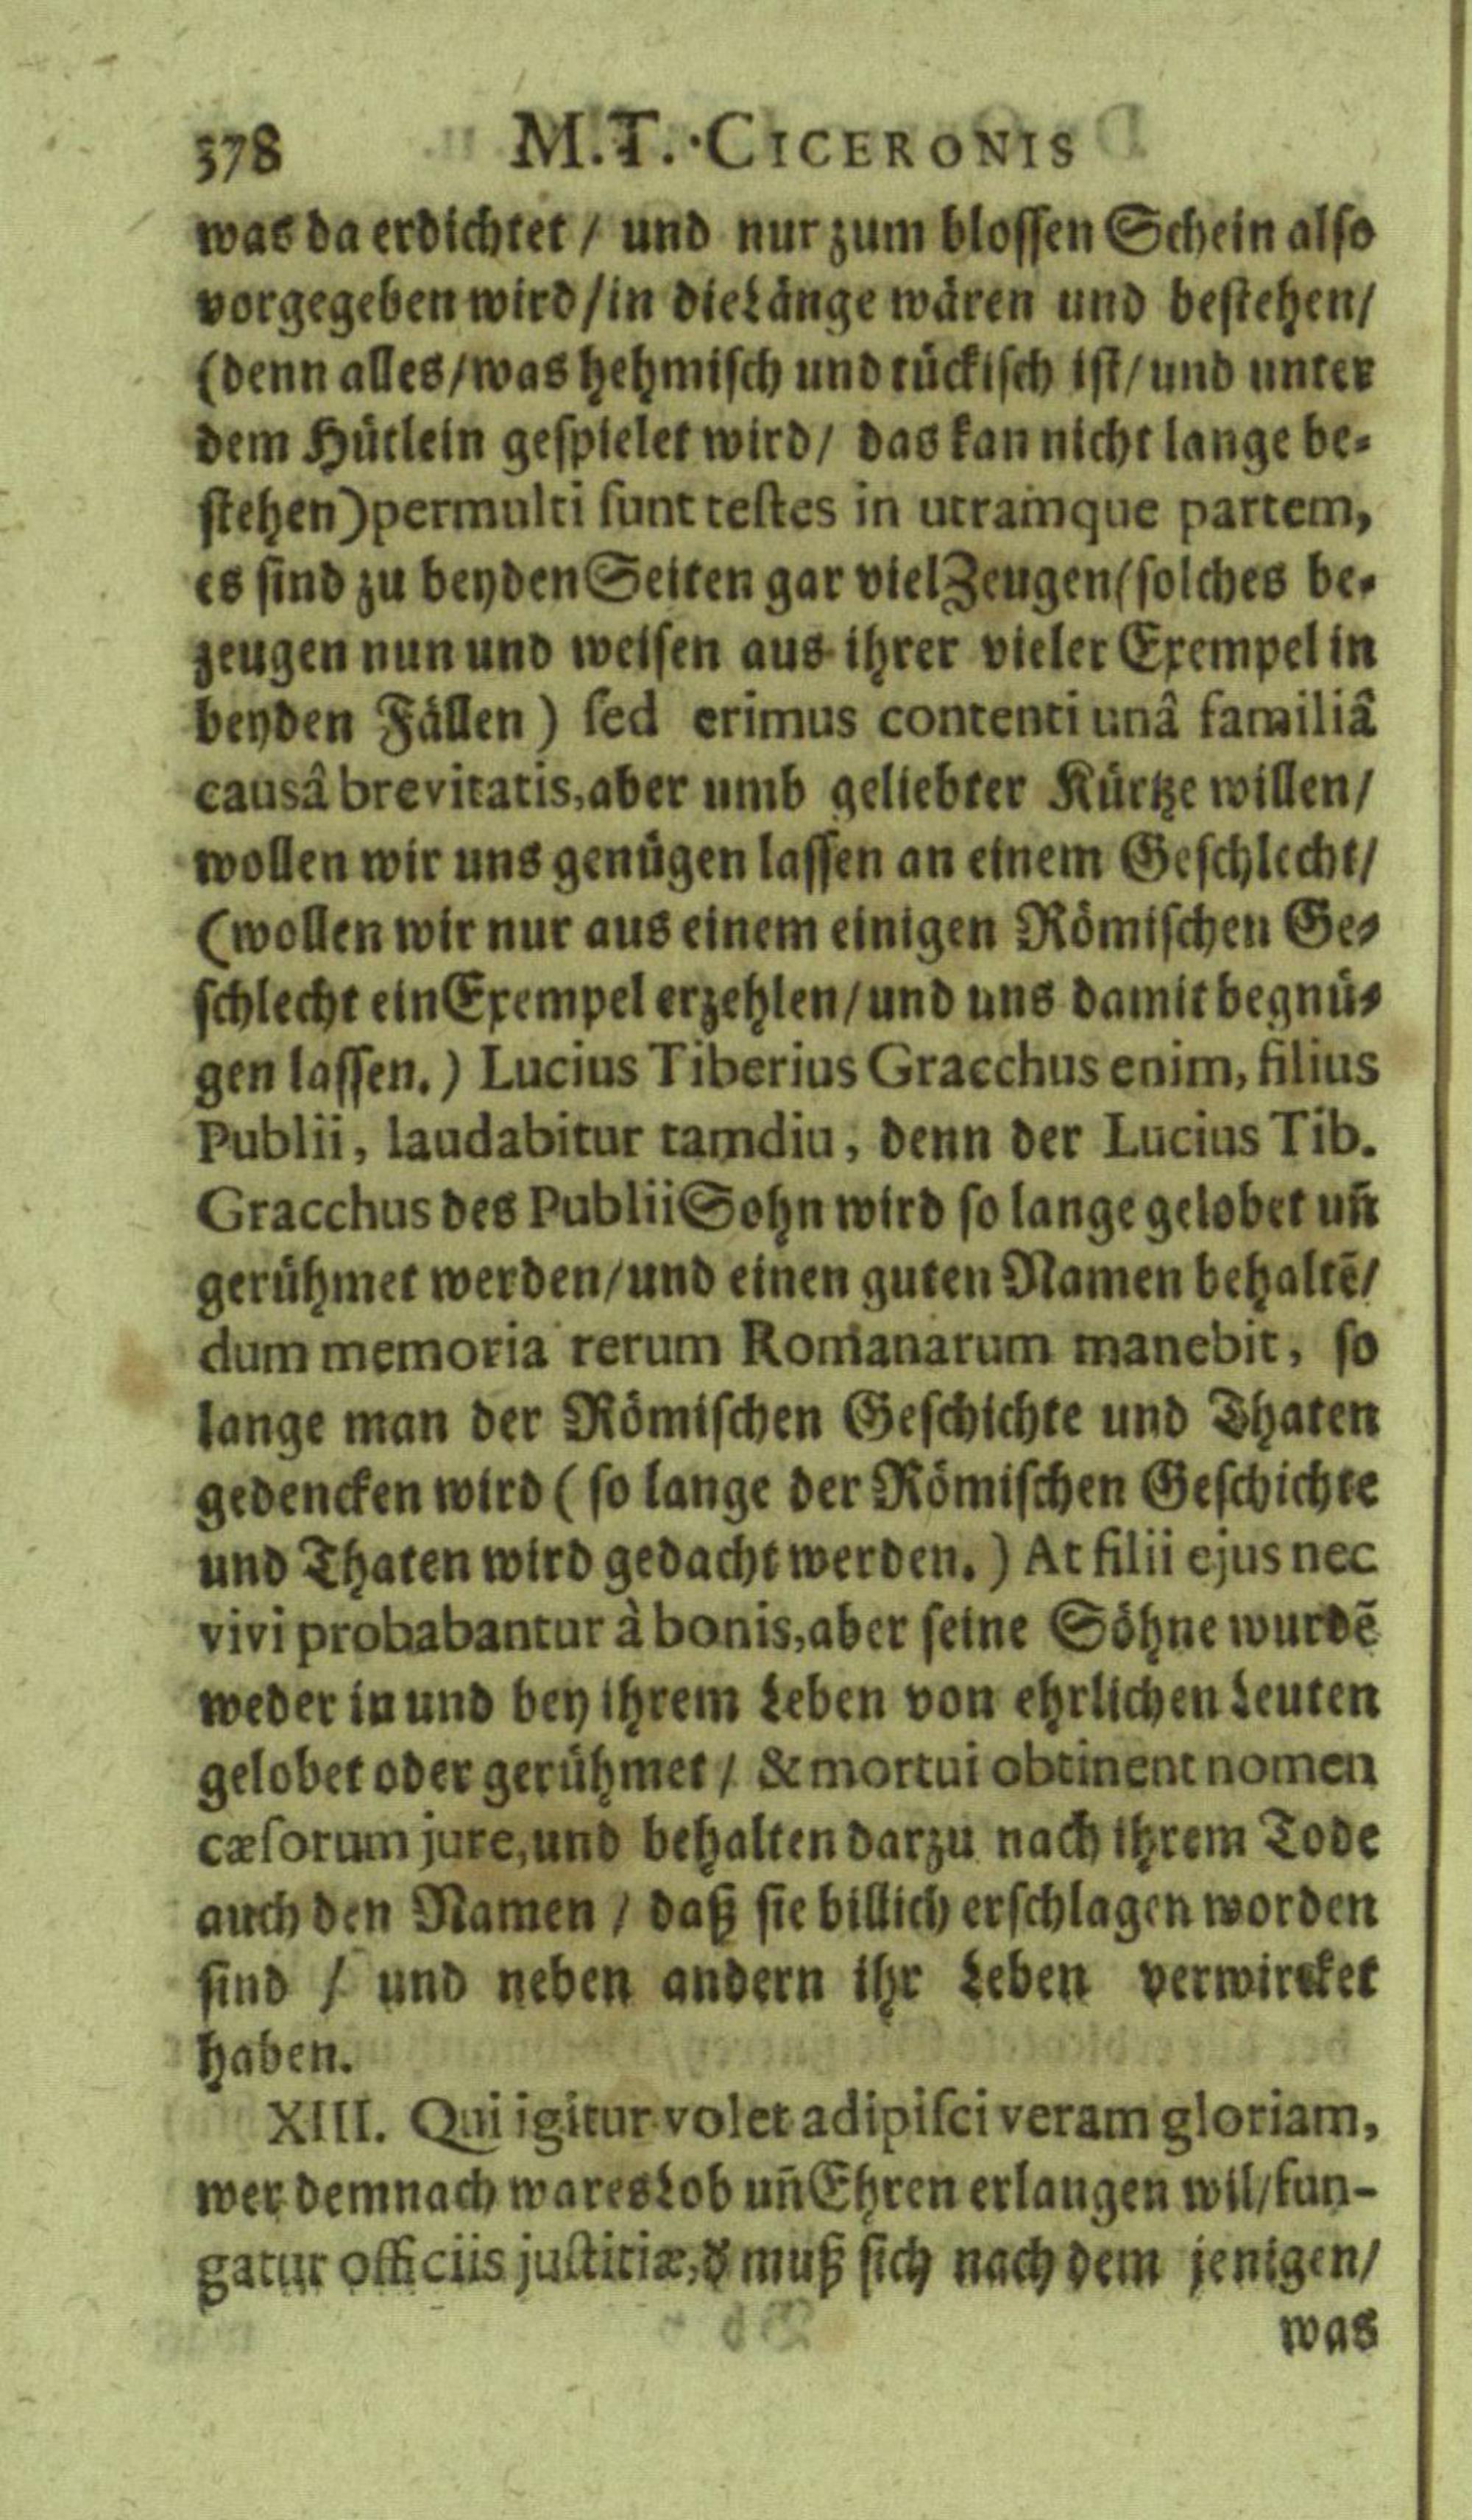 378 M.T. CICERONIS
was da erdichtet / und nur zum blossen Schein also
vorgegeben wird / in die Länge wären und bestehen /
(denn alles / was hehmisch und tückisch ist / und unter
dem Hütlein gespielet wird / das kan nicht lange be-
stehen) permulti sunt testes in utramque partem,
es sind zu beyden Seiten gar viel Zeugen (solches be-
zeugen nun und weisen aus ihrer vieler Exempel in
beyden Fällen) sed erimus contenti unâ familiâ
causâ brevitatis, aber umb geliebter Kürtze willen /
wollen wir uns genügen lassen an einem Geschlecht /
(wollen wir nur aus einem einigen Römischen Ge-
schlecht ein Exempel erzehlen / und uns damit begnü-
gen lassen.) Lucius Tiberius Gracchus enim, filius
Publii, laudabitur tamdiu, denn der Lucius Tib.
Gracchus des Publii Sohn wird so lange gelobet uñ
gerühmet werden / und einen guten Namen behaltẽ /
dum memoria rerum Romanarum manebit, so
lange man der Römischen Geschichte und Thaten
gedencken wird (so lange der Römischen Geschichte
und Thaten wird gedacht werden.) At filii ejus nec
vivi probabantur à bonis, aber seine Söhne wurdẽ
weder in und bey ihrem Leben von ehrlichen Leuten
gelobet oder gerühmet / & mortui obtinent nomen
cæsorum jure, und behalten darzu nach ihrem Tode
auch den Namen / daß sie billich erschlagen worden
sind / und neben andern ihr Leben verwircket
haben.
XIII. Qui igitur volet adipisci veram gloriam,
wer demnach wares Lob uñ Ehren erlangen wil / fun-
gatur officiis justitiæ, d' muß sich nach dem jenigen /
was